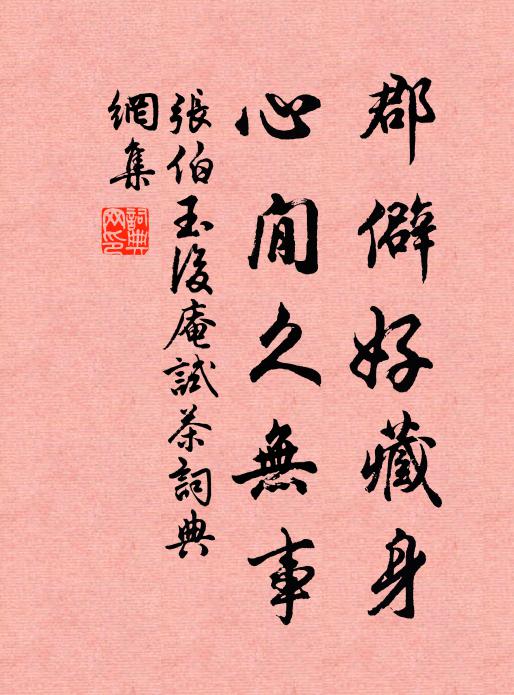 郡僻好藏身
心閒久無事
張伯玉後庵試茶詞典
網集
詞典網印